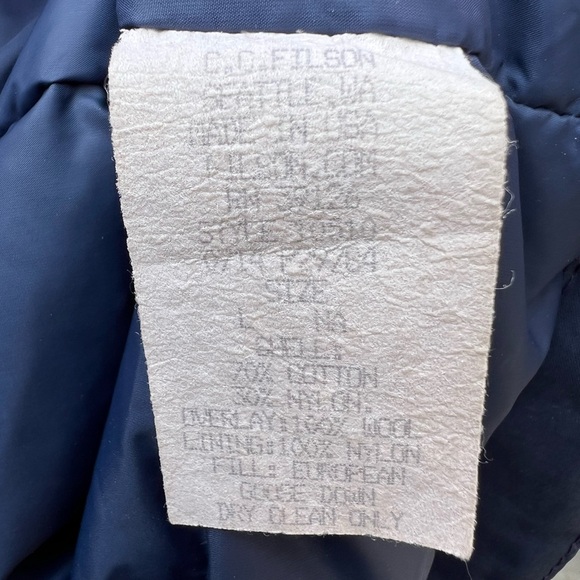 C.C.FILSON
SEATTLE,WA
MADE IN USA
FILSON.COM
RN 39126
STYLE 10510
SIZE
L NA
SHELL:
70% COTTON
30% NYLON.
OVERLAY:100% WOOL
LINING:100% NYLON
FILL: EUROPEAN
GOOSE DOWN
DRY CLEAN ONLY